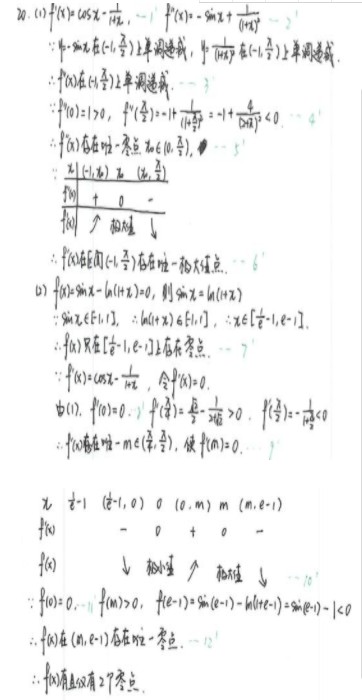 20. (1) f'(x)=cosx-1/(1+x), --1' f''(x)=-sinx+1/(1+x)² --2'
∵ y=-sinx在(-1,π/2)上单调递减, y=1/(1+x)²在(-1,π/2)上单调递减
∴ f''(x)在(-1,π/2)上单调递减. --3'
∵ f''(0)=1>0, f''(π/2)=-1+1/(1+π/2)²=-1+4/(2+π)²<0 --4'
∴ f''(x)存在唯一零点x₀∈(0,π/2), --5'
∴ x (-1,x₀) x₀ (x₀,π/2)
f''(x) + 0 -
f'(x) ↗ 极大值 ↘
∴ f'(x)在区间(-1,π/2)存在唯一极大值点. --6'
(2) f(x)=sinx-ln(1+x)=0, 则sinx=ln(1+x)
∵ sinx∈[-1,1], ∴ ln(1+x)∈[-1,1], ∴ x∈[1/e-1,e-1].
∴ f(x)只在[1/e-1,e-1]上存在零点. --7'
∵ f'(x)=cosx-1/(1+x), 令f'(x)=0.
由(1), f'(0)=0
∴ f'(x)存在唯一m∈(π/4,π/2), 使f'(m)=0. --9'
x 1/e-1 (1/e-1,0) 0 (0,m) m (m,e-1)
f'(x) - 0 + 0 -
f(x) ↓ 极小值 ↗ 极大值 ↓ --10'
∵ f(0)=0, --11' f(m)>0, f(e-1)=sin(e-1)-ln(1+e-1)=sin(e-1)-1<0
∴ f(x)在(m,e-1)存在唯一零点. --12'
∴ f(x)有且仅有2个零点.